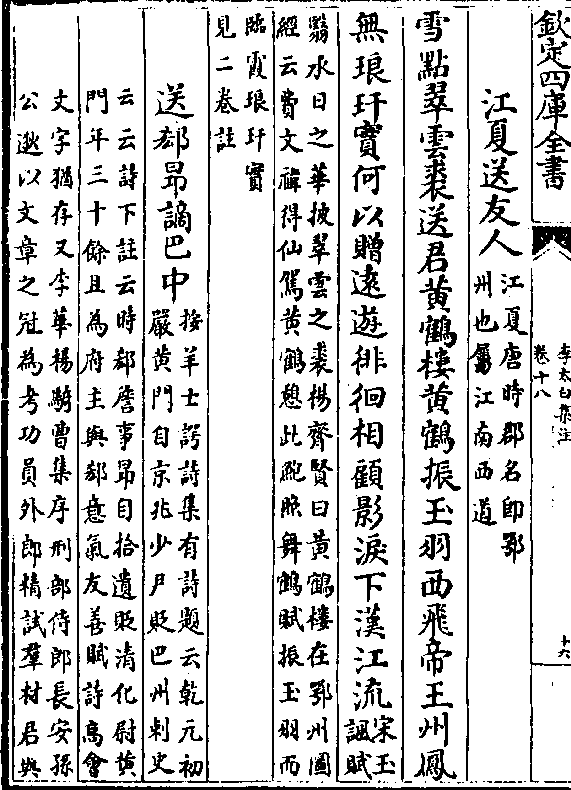 欽定四庫全書
李太白集注
卷十八
十六
江夏送友人
江夏唐時郡名即鄂
州也屬江南西道
雪點翠雲裘送君黃鶴樓黃鶴振玉羽西飛帝王州鳳
無琅玕實何以贈遠遊徘徊相顧影淚下漢江流
宋玉
諷賦
翳水日之華披翠雲之裘楊齊賢曰黃鶴樓在鄂州圖
經云費文禕得仙駕黃鶴憩此鮑照舞鶴賦振玉羽而
臨霞琅玕實
見二卷註
送郄昂謫巴中
按羊士諤詩集有詩題云乾元初
嚴黃門自京兆少尹貶巴州刺史
云云詩下註云時郄詹事昂自拾遺貶清化尉黃
門年三十餘且為府主與郄意氣友善賦詩高會
文字猶存又李華楊騎曹集序刑部侍郎長安孫
公逖以文章之冠為考功員外郎精試羣材君與